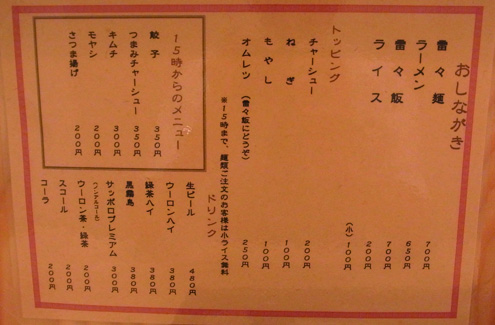 おしながき
雷々麺 700円
ラーメン 650円
雷々飯 700円
ライス 200円
(小) 100円
トッピング
チャーシュー 200円
ねぎ 100円
もやし 100円
オムレツ (雷々飯にどうぞ) 250円
※15時まで、麺類ご注文のお客様は小ライス無料
15時からのメニュー
餃子 350円
つまみチャーシュー 350円
キムチ 300円
モヤシ 200円
さつま揚げ 200円
ドリンク
生ビール 480円
ウーロンハイ 380円
緑茶ハイ 380円
黒霧島 380円
サッポロプレミアム 300円
(ノンアルコール)
ウーロン茶・緑茶 200円
スコール 200円
コーラ 200円